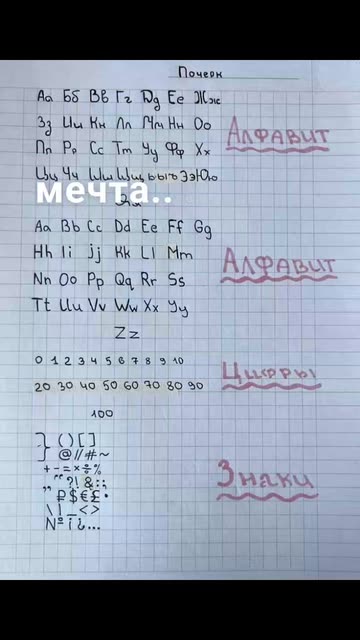 Почерк
Аа Бб Вв Гг Дд Ее Жж
Зз Ии Кк Лл Мм Нн Оо
Алфавит
Пп Рр Сс Тт Уу Фф Хх
Цц Чч Шш Щщ ь ы ъ Ээ Юю
мечта..
Яя
Aa Bb Cc Dd Ee Ff Gg
Hh Ii jj Kk Ll Mm
Алфавит
Nn Oo Pp Qq Rr Ss
Tt Uu Vv Ww Xx Yy
Zz
0 1 2 3 4 5 6 7 8 9 10
Цифры
20 30 40 50 60 70 80 90
100
} ( ) [ ]
} @ // # ~
+ - = × ÷ %
Знаки
„ “ ?! & : ;
₽ $ € £ •
\ | _ < >
№ i ¿ ...